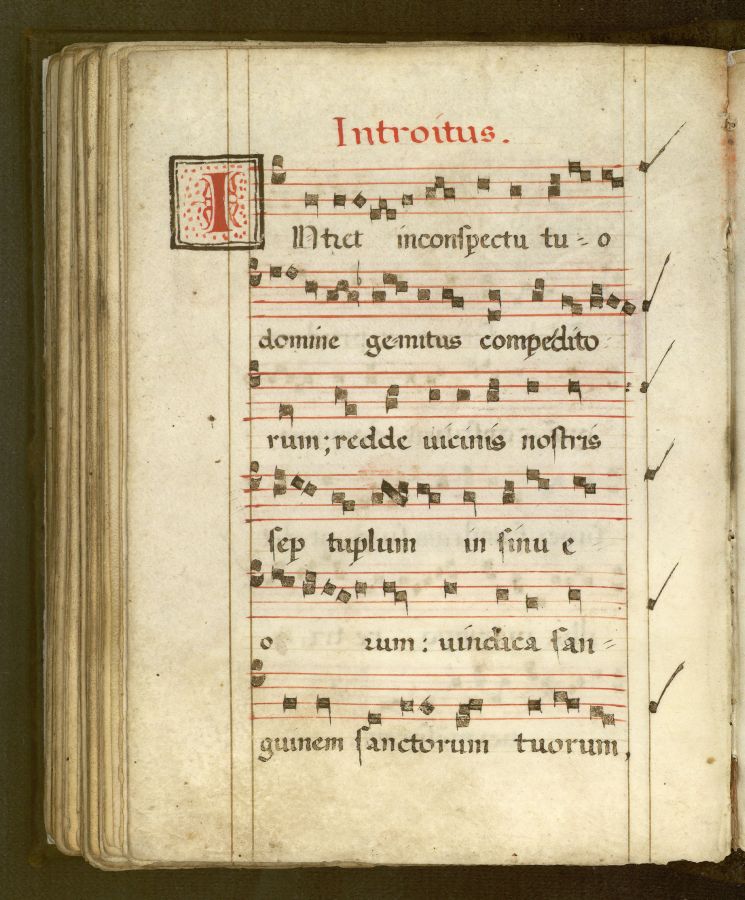 Introitus.
INtret inconspectu tu=o
domine gemitus compedito
rum; redde uicinis nostris
sep tuplum in sinu e
o rum: uindica san=
guinem sanctorum tuorum,